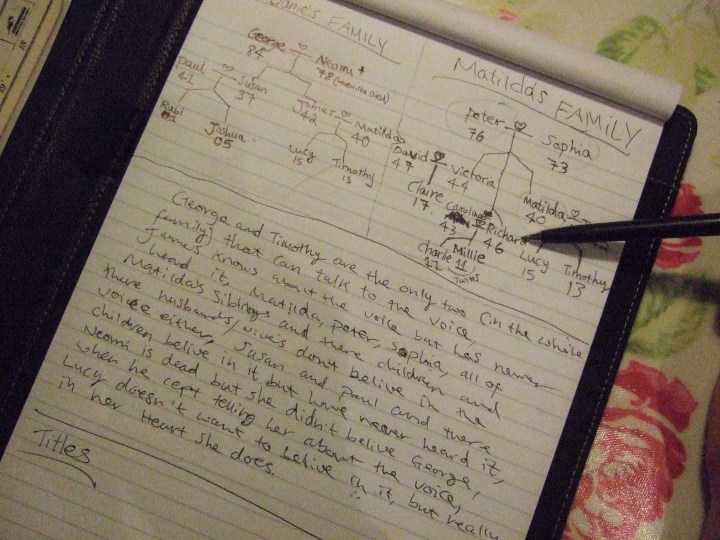 James FAMILY
George ♡ Neomi +
84
78 (when she died)
Paul ♡ Susan
42
37
James ♡ Matilda
42
40
Rubi
Joshua
05
Lucy
15
Timothy
13
Matilda's FAMILY
Peter ♡ Sophia
76
73
David ♡ Victoria
47
44
Matilda ♡
40
Claire
17
Caroline ♡ Richard
43
46
Charlie
Millie
11
Twins
Lucy
15
Timothy
13
George and Timothy are the only two (in the whole
family) that can talk to the voice,
James knows about the voice but has never
heard it, Matilda, peter, sophia, all of
Matilda's Siblings and there children and
there husbands/wives dont belive in the
voice either, Susan and paul and there
children belive in it but have never heard it,
Neomi is dead but she didn't belive George,
when he cept telling her about the voice,
Lucy doesn't want to belive in it, but really
in her Heart she does.
Titles